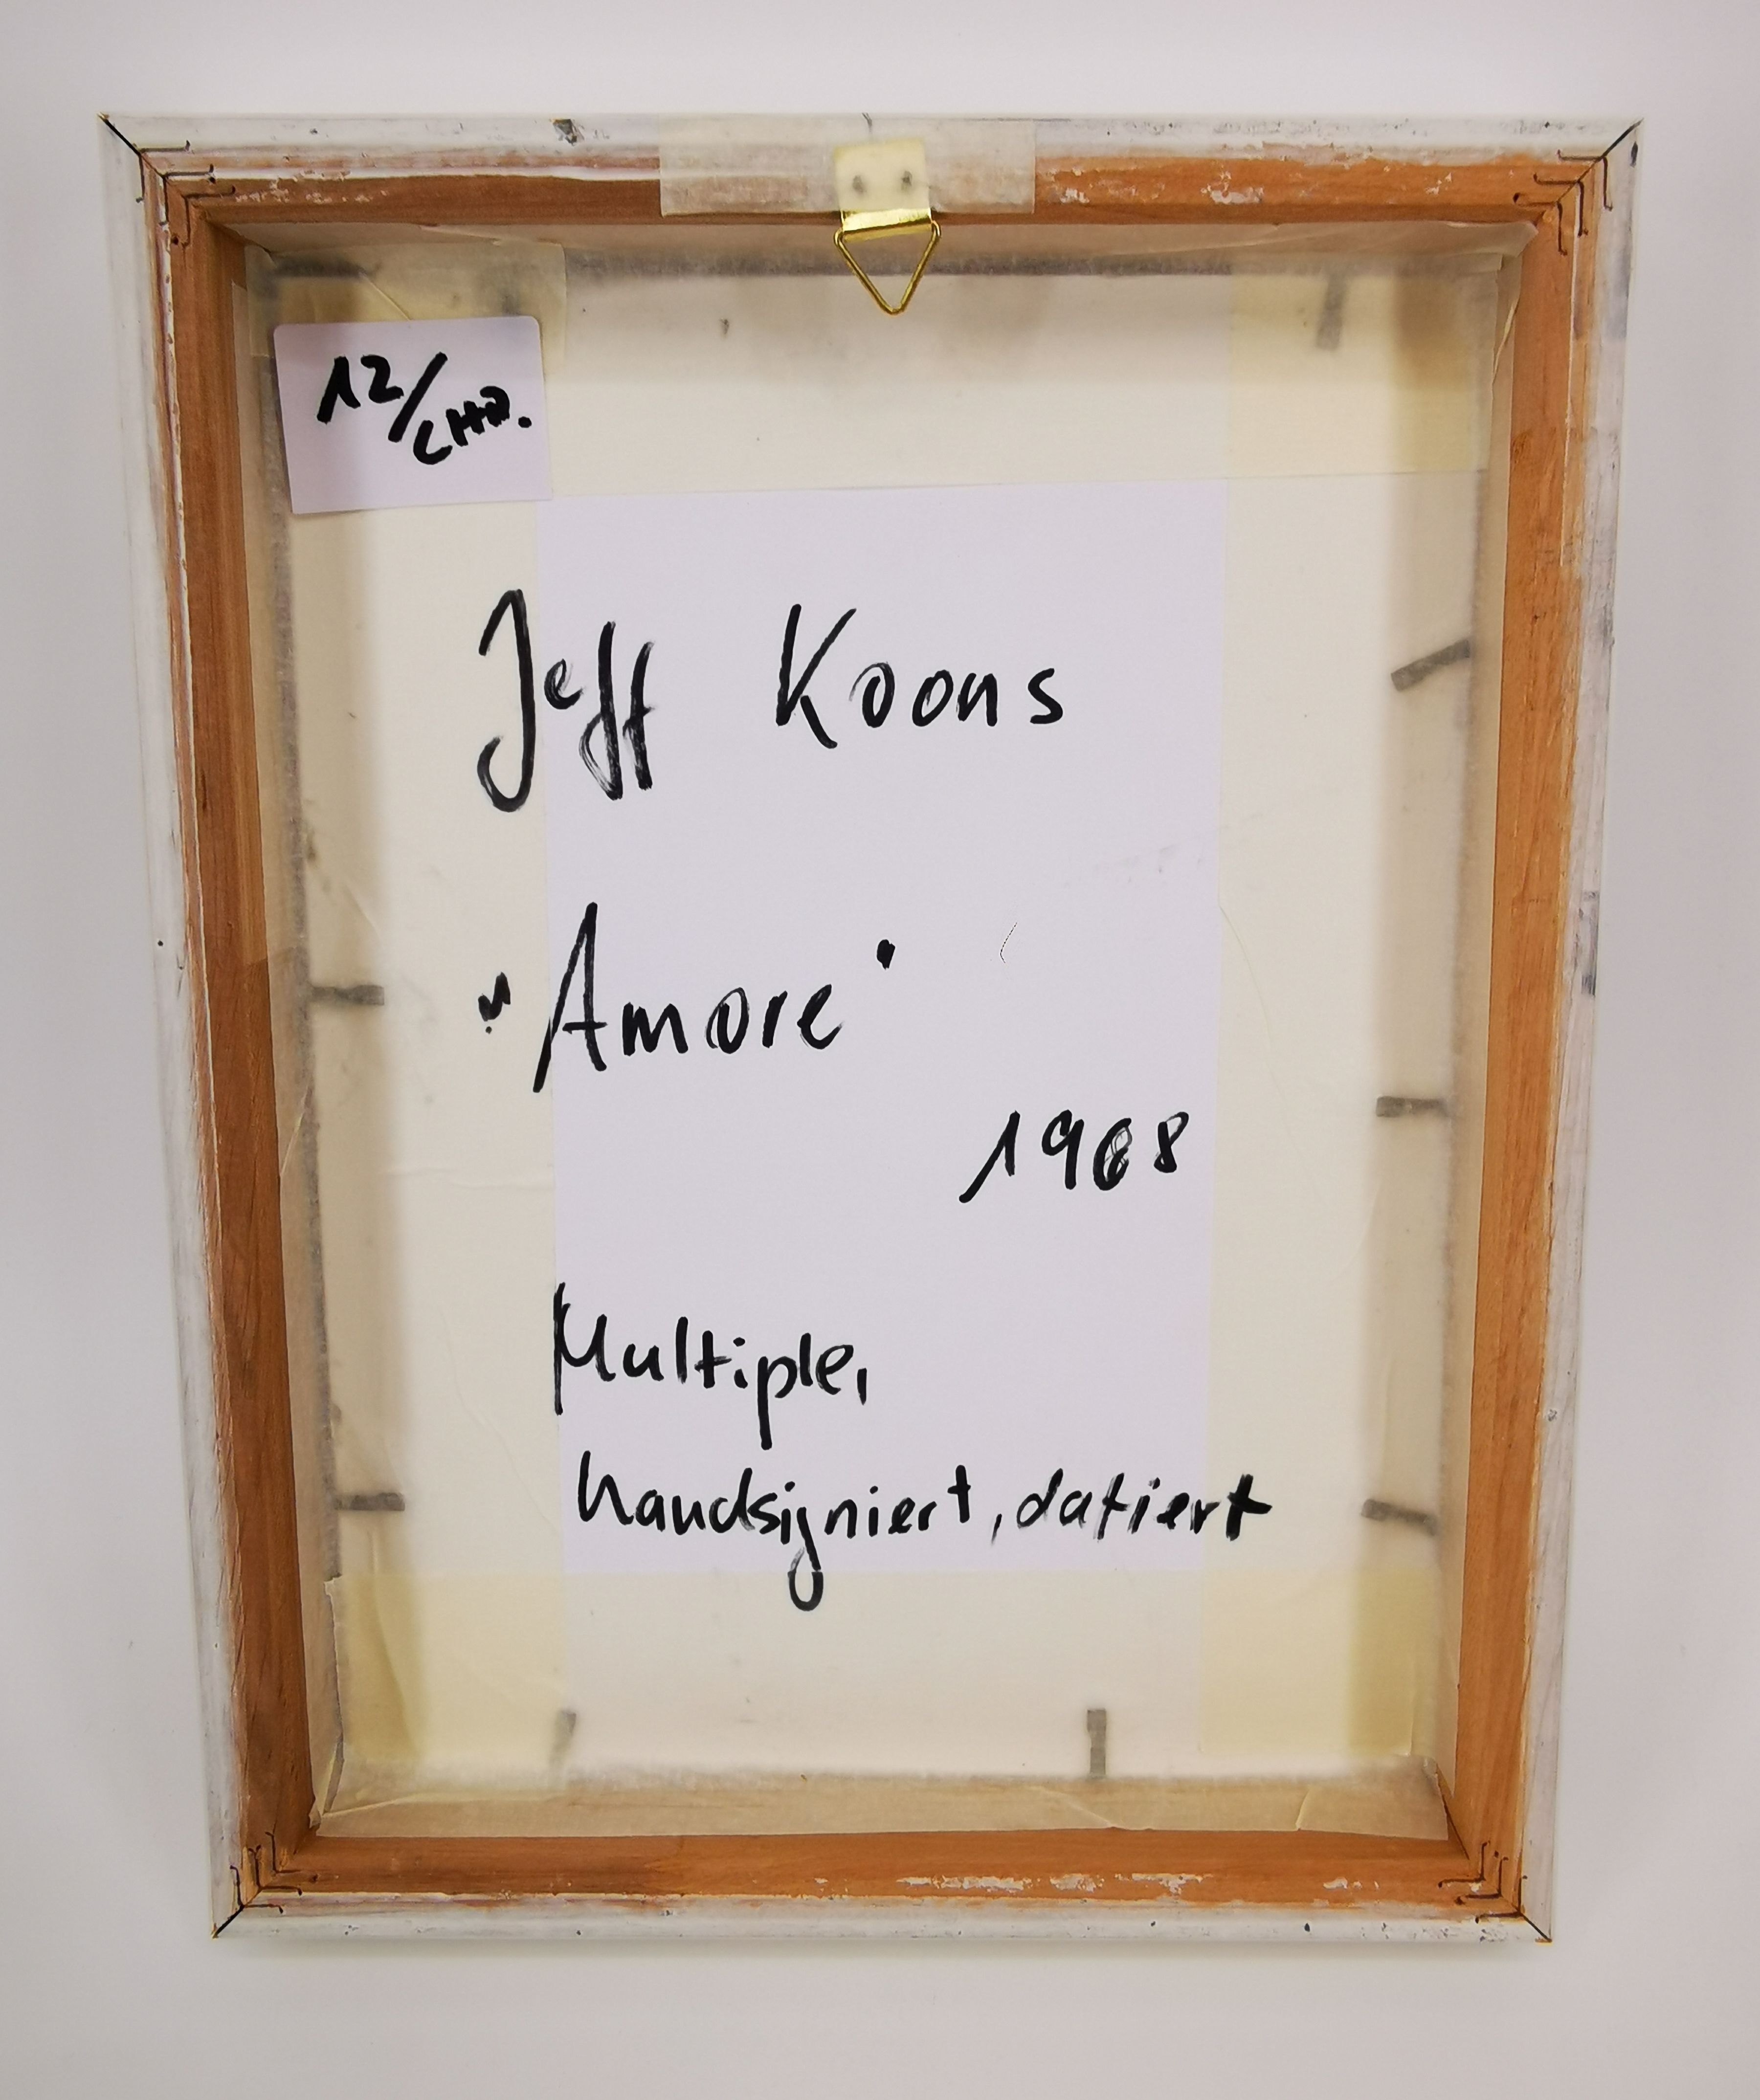 12/
Jeff Koons
"Amore"
1988
Multiple,
handsigniert, datiert